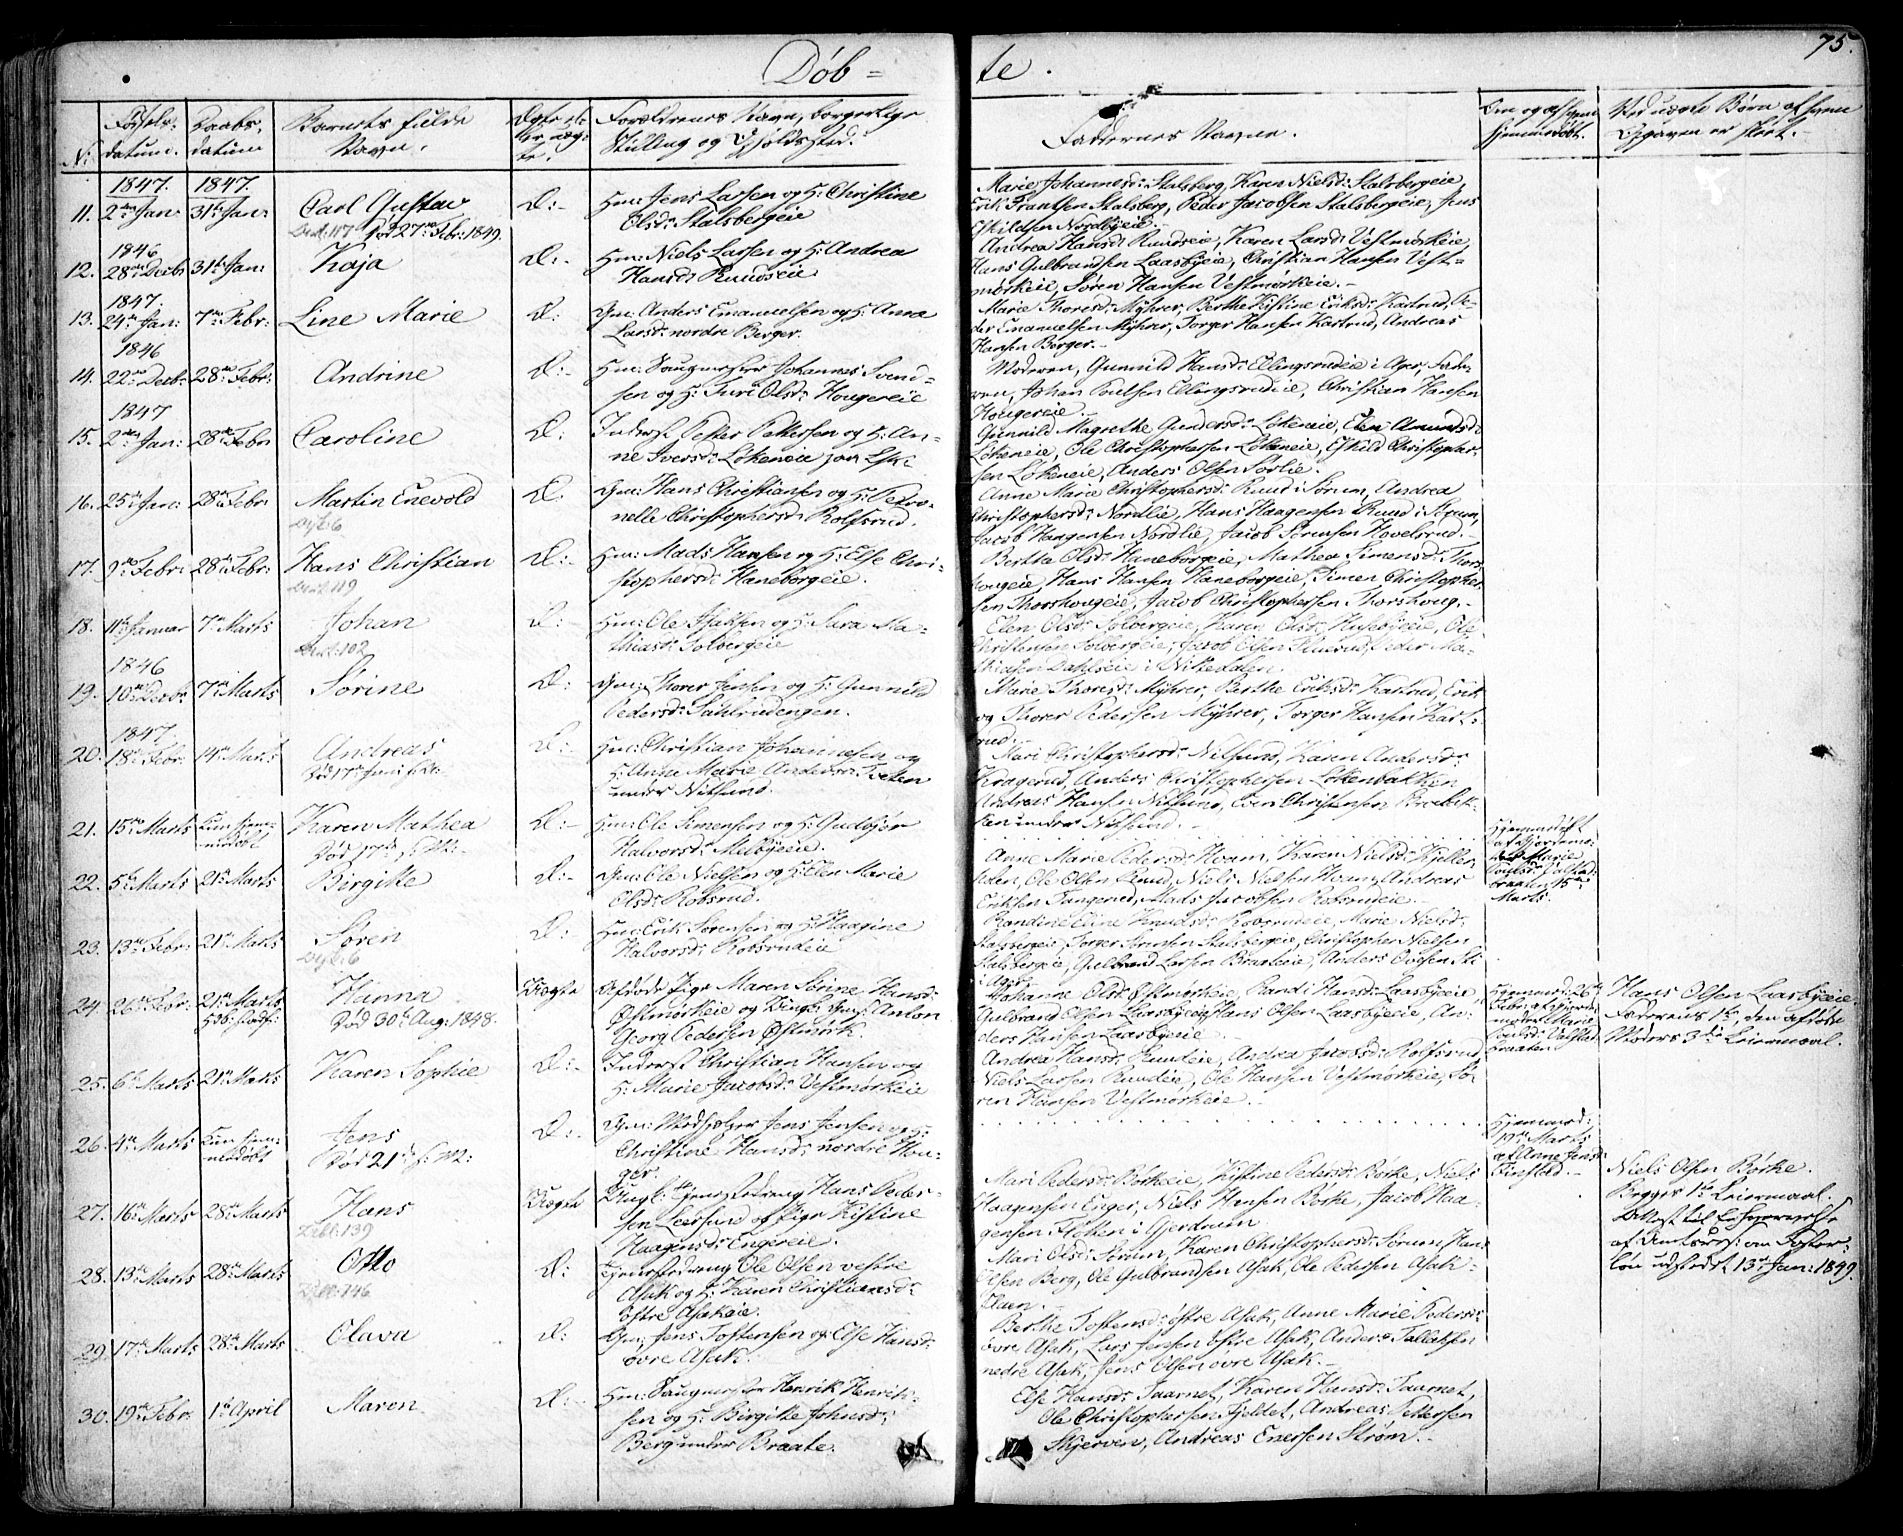 75.
Døb=te.
No
Fødsels-
datum.
Daabs-
datum
Barnets fulde
Navn.
Ægte el-
ler uæg-
te.
Forældrenes Navn, borgerlige
Stilling og Opholdssted.
Faddernes Navne.
hjemmedøbt.
Ved uægte Børn af hvem
Opgaven er skeet.
1847. 1847.
11. 2den Jan: 31te Jan: Carl Gustav Æ:
Død 27de Febr: 1849.
Hm: Jens Larsen og H: Christine
Olsd: Stalsbergeie
Marie Johannesd: Stalsberg, Karen Nielsd: Stalsbergeie,
Erik Frantsen Stalsberg, Peder Jacobsen Stalsbergeie, Jens
Eskildsen Nordbyeie.
1846
12. 28de Decbr 31te Jan: Kaja Æ:
Hm: Niels Larsen og H: Andrea
Hansd: Rundeeie
Andrea Hansd: Rundeeie, Karen Larsd: Vestmørkeie,
Hans Gulbrandsen Laasbyeie, Christian Hansen Vest-
mørkeie, Søren Hansen Vestmørkeie.
1847.
13. 24de Jan: 7de Febr: Line Marie Æ:
Gm: Anders Emanuelsen og H: Anna
Larsd: nordre Berger.
Marie Thoresd: Myhrer, Berthe Kistine Eriksd: Kastrud, Pe-
der Emanuelsen Myhrer, Torger Hansen Kastrud, Andreas
Hansen Berger.
1846
14. 22de Decbr: 28de Febr: Andrine Æ:
Hm: Saugmester Johannes Svend-
sen og H: Turi Olsd: Hougereie
Moderen, Gunnild Hansd: Ellingsrudeie i Ager, Fade-
ren, Johan Poulsen Ellingsrudeie, Christian Hansen
Hougereie.
1847
15. 2den Jan: 28de Febr Caroline Æ:
Inderst Petter Pettersen og H: An-
ne Iversd: Løkeneie
Gunnild Magrethe Gundersd: Løkeneie, Elen Amundsd:
Løkeneie, Ole Christophersen Løkeneie, Eskild Christopher-
sen Løkeneie, Anders Olsen Sørlie.
16. 25de Jan: 28de Febr Martin Enevold Æ:
Gm: Hans Christiansen og H: Petro-
nelle Christophersd: Rolfsrud.
Anne Marie Christophersd: Ruud i Sørum, Andrea
Christophersd: Nordlie, Hans Haagensen Ruud i Sørum,
Jacob Haagensen Nordlie, Jacob Sørensen Hovelsrud.
17. 9de Febr: 28de Febr: Hans Christian Æ:
Hm: Mads Hansen og H: Else Chri-
stophersd: Haneborgeie.
Berthe Olsd: Haneborgeie, Mathea Simensd: Thors-
hougeie, Hans Hansen Haneborgeie, Simen Christopher-
sen Thorshougeie, Jacob Christophersen Thorshoug.
18. 11te Januar 7de Marts Johan Æ:
Hm: Ole Isaksen og H: Sara Ma-
thiasd: Solbergeie
Elen Olsd: Solbergeie, Karen Olsd: Husebyeie, Ole
Christensen Solbergeie, Jacob Olsen Peder Ma-
thiasen Dahlseie i Nittedalen.
1846
19. 10de Decbr 7de Marts Sørine Æ:
Gm: Thorer Jensen og H: Gunnild
Pedersd:
Marie Thoresd: Myhrer, Berthe Eriksd: Kastrud, Erik
og Thorer Pedersen Myhrer, Torger Hansen Kast-
rud.
1847.
20. 18de Febr: 14de Marts Andreas Æ:
Død 17de Juni
Hm: Christian Johannesen og
H: Anne Marie Andersd:
under Nitsund.
Mari Christophersd: Nilsund, Karen Andersd:
Kragerud, Anders Christophersen Løkenbakken
Andreas Hansen Nitsund, Even Christensen
under Nitsund.
21. 15de Marts Kun hjem-
medøbt Karen Mathea Æ:
Død 17de s: M:
Hm: Ole Simensen og H: Gudbjør
Halvorsd: Melbyeie.
Hjemmedøbt
af Gjordemo-
der Marie
15de
Marts.
22. 5te Marts 21de Marts Birgitte Æ:
Gm: Ole Nielsen og H: Elen Marie
Olsd: Robsrud.
Anne Marie Pedersd: Hvam, Karen Nielsd: Kjeller-
Ole Olsen Ruud, Niels Nielsen Hvam, Andreas
Eriksen Tangerud, Mads Jacobsen Robsrudeie.
23. 13de Febr: 21de Marts Søren Æ:
Hm: Erik Sørensen og H: Haagine
Halvorsd: Robsrudeie
Randine Eline Knudsd: Robsrudeie, Marie Nielsd:
Stalsbergeie, Torger Simensen Stalsbergeie, Christopher Nielsen
Stalsbergeie, Gulbrand Larsen Braateeie, Anders
24. 26de Febr: 21de Marts Hanna Uægte
Død 30te Aug: 1848.
Afdøde Pige Maren Sørine Hansd:
Østmørkeie og Anton
Georg Pedersen Østmork.
Johanne Olsd: Østmørkeie, Randi Hansd: Laasbyeie
Gulbrand Olsen Laasbyeie, Hans Olsen Laasbyeie, An-
ders Hansen Laasbyeie.
Hans Olsen Laasbyeie
Faderens 1ste, den afdøde
Moders 3die Leiermaal.
25. 6te Marts 21de Marts Karen Sophie Æ:
Inderst Christian Hansen og
H: Marie Jacobsd: Vestmørkeie
Andrea Hansd: Rundeie, Andrea Jacobsd: Rolfsrud,
Niels Larsen Rundeie, Ole Hansen Vestmørkeie, Sø-
ren Hansen Vestmørkeie.
26. 4de Marts Kun hjem-
medøbt Jens Æ:
Død 21de s: M:
Gm: Medhjelper Jens Jensen og H:
Christine Hansd: nordre Hou-
ger.
Hjemmed:
19de Marts
af Anne Jensd:
Finstad.
27. 16de Marts 28de Marts Hans Uægte
Ungk: Tjenestedreng Hans Peder-
sen Leersund og Pige Kistine
Haagensd: Engereie.
Mari Pedersd: Børkeeie, Kistine Pedersd: Børke, Niels
Haagensen Enger, Niels Hansen Børke, Jacob Haa-
gensen i Gjerdrum
Niels Olsen Børke.
Begges 1ste Leiermaal.
Attest til
af om Foster-
løn udstedt 13de Jan: 1849.
28. 13de Marts 28de Marts Otto Æ:
Tjenestedreng Ole Olsen vestre
Asak og H: Karen Christiansd:
østre Asakeie.
Mari Olsd: Sørum, Karen Christophersd: Sørum, Hans
Olsen Berg, Ole Gulbrandsen Asak, Ole Pedersen Asak-
29. 17de Marts 28de Marts Olava Æ:
Gm: Jens Tostensen og Else Hansd:
øvre Asak.
Berthe Tostensd: østre Asak, Anne Marie Pedersd:
øvre Asak, Lars Jensen østre Asak, Anders Tollefsen
nedre Asak, Jens Olsen øvre Asak.
30. 19de Febr: 1ste April Maren Æ:
Hm: Saugmester Henrik Henrik-
sen og H: Birgitte Johnsd:
Berg under Braate.
Else Hansd: Taarnet, Karen Hansd: Taarnet,
Ole Christophersen Fjeldet, Andreas Pettersen
Skjerven, Andreas Enersen Strøm.